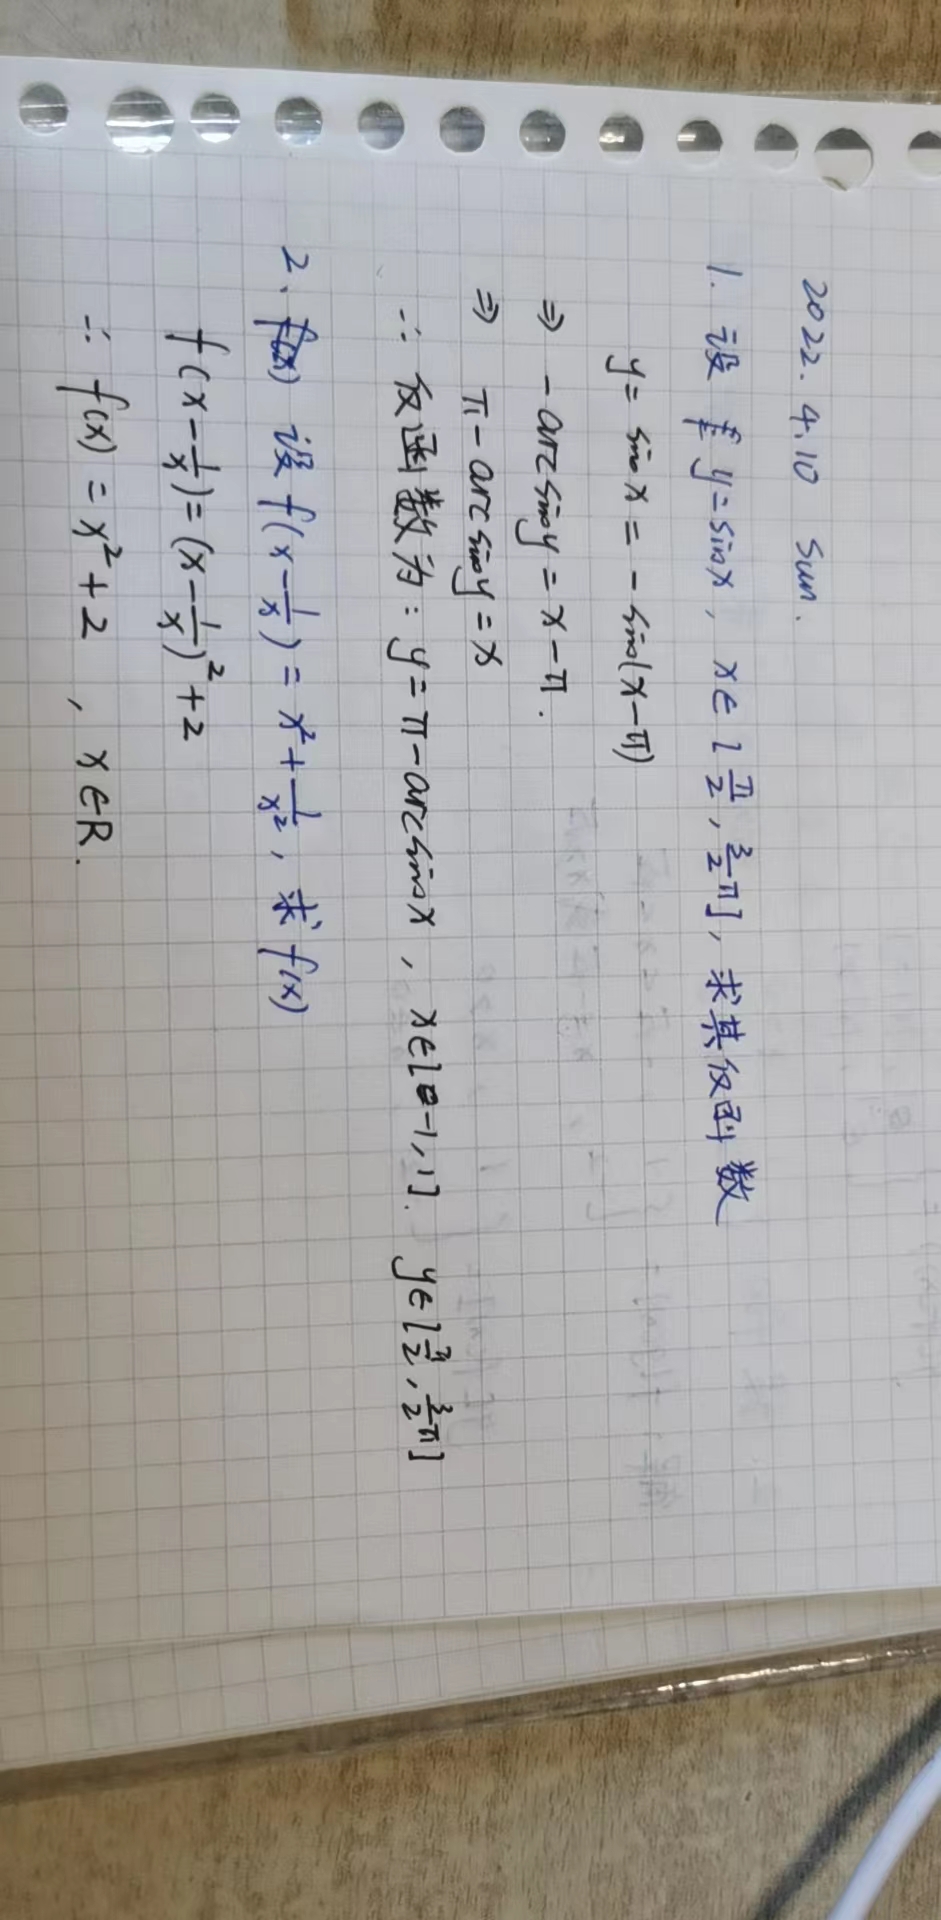 2022. 4.10 Sun.
1. 设 y=sinx, x∈[π/2, 3/2π], 求其反函数
y= sinx = -sin(x-π)
⇒ -arcsiny = x-π.
⇒ π-arcsiny = x
∴ 反函数为: y=π-arcsinx, x∈[-1,1]. y∈[π/2, 3/2π]
2. f(x) 设 f(x-1/x) = x²+1/x², 求 f(x)
f(x-1/x)=(x-1/x)²+2
∴ f(x)=x²+2, x∈R.